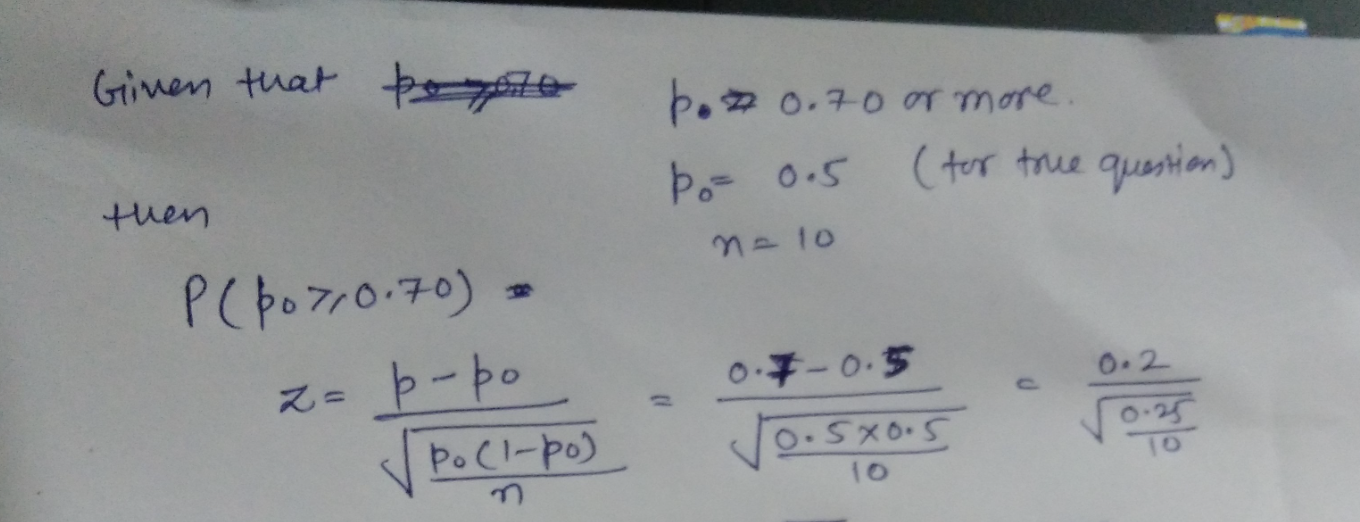 Given that p₀ ≥ 0.70 p₀ = 0.70 or more.
p₀ = 0.5 (for true question)
then
n = 10
P(p₀ ≥ 0.70) =
z = p - p₀ / √(p₀(1-p₀)/n) = 0.7 - 0.5 / √(0.5×0.5/10) = 0.2 / √(0.25/10)